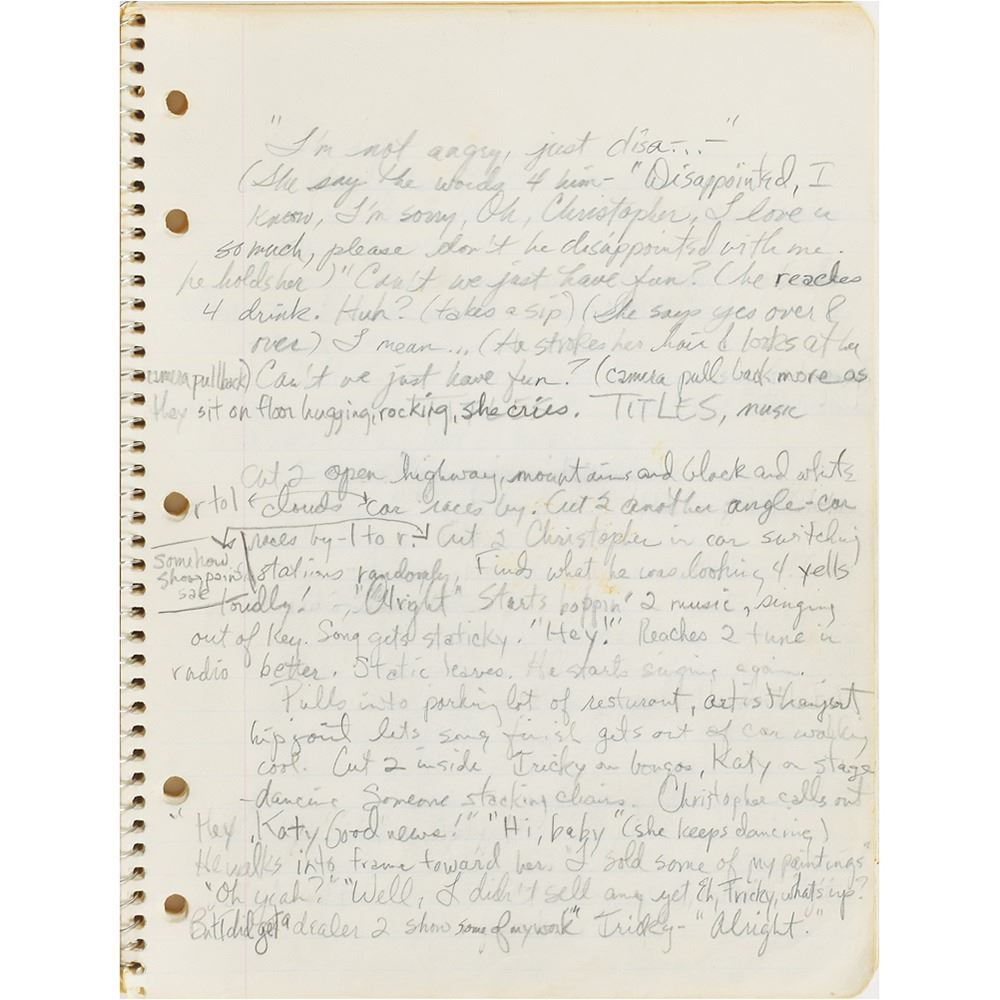 "I'm not angry, just disa-..-"
(She say the words 4 him- "Disappointed, I
know, I'm sorry, Oh, Christopher, I love u
so much, please don't be disappointed with me.
he holds her)" Can't we just have fun? (he reaches
4 drink. Huh? (takes a sip) (She says yes over &
over) I mean... (He strokes her hair & looks at her
camera pull back) Can't we just have fun? (camera pull back more as
they sit on floor hugging, rocking, she cries. TITLES, music
Cut 2 open highway, mountains and black and white
r to l clouds car races by. Cut 2 another angle-car
races by-l to r. Cut 2 Christopher in car switching
somehow
show paint
stations randomly, Finds what he was looking 4 yells
loudly! "Alright" Starts boppin' 2 music, singing
out of key. Song gets staticky. "Hey!" Reaches 2 tune in
radio better. Static leaves. He starts singing again.
Pulls into parking lot of resturant, artist hangout
hip joint lets song finish gets out of car walking
cool. Cut 2 inside Tricky on bongos, Katy on stage
-dancing Someone stacking chairs. Christopher calls out
"Hey, Katy Good news!" "Hi, baby" (she keeps dancing)
He walks into frame toward her. "I sold some of my paintings"
"Oh yeah?" "Well, I didn't sell any yet Eh, Tricky, what's up?
But I did get a dealer 2 show some of my work" Tricky- "Alright."